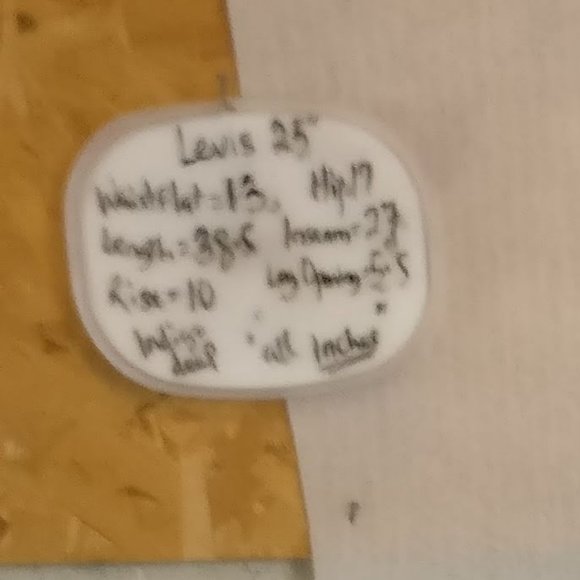 Levis 25"
Waist flat = 13. Hip 17
Length = 38.5 Inseam = 27
Rise = 10 Leg Opening = 5.5
all Inches